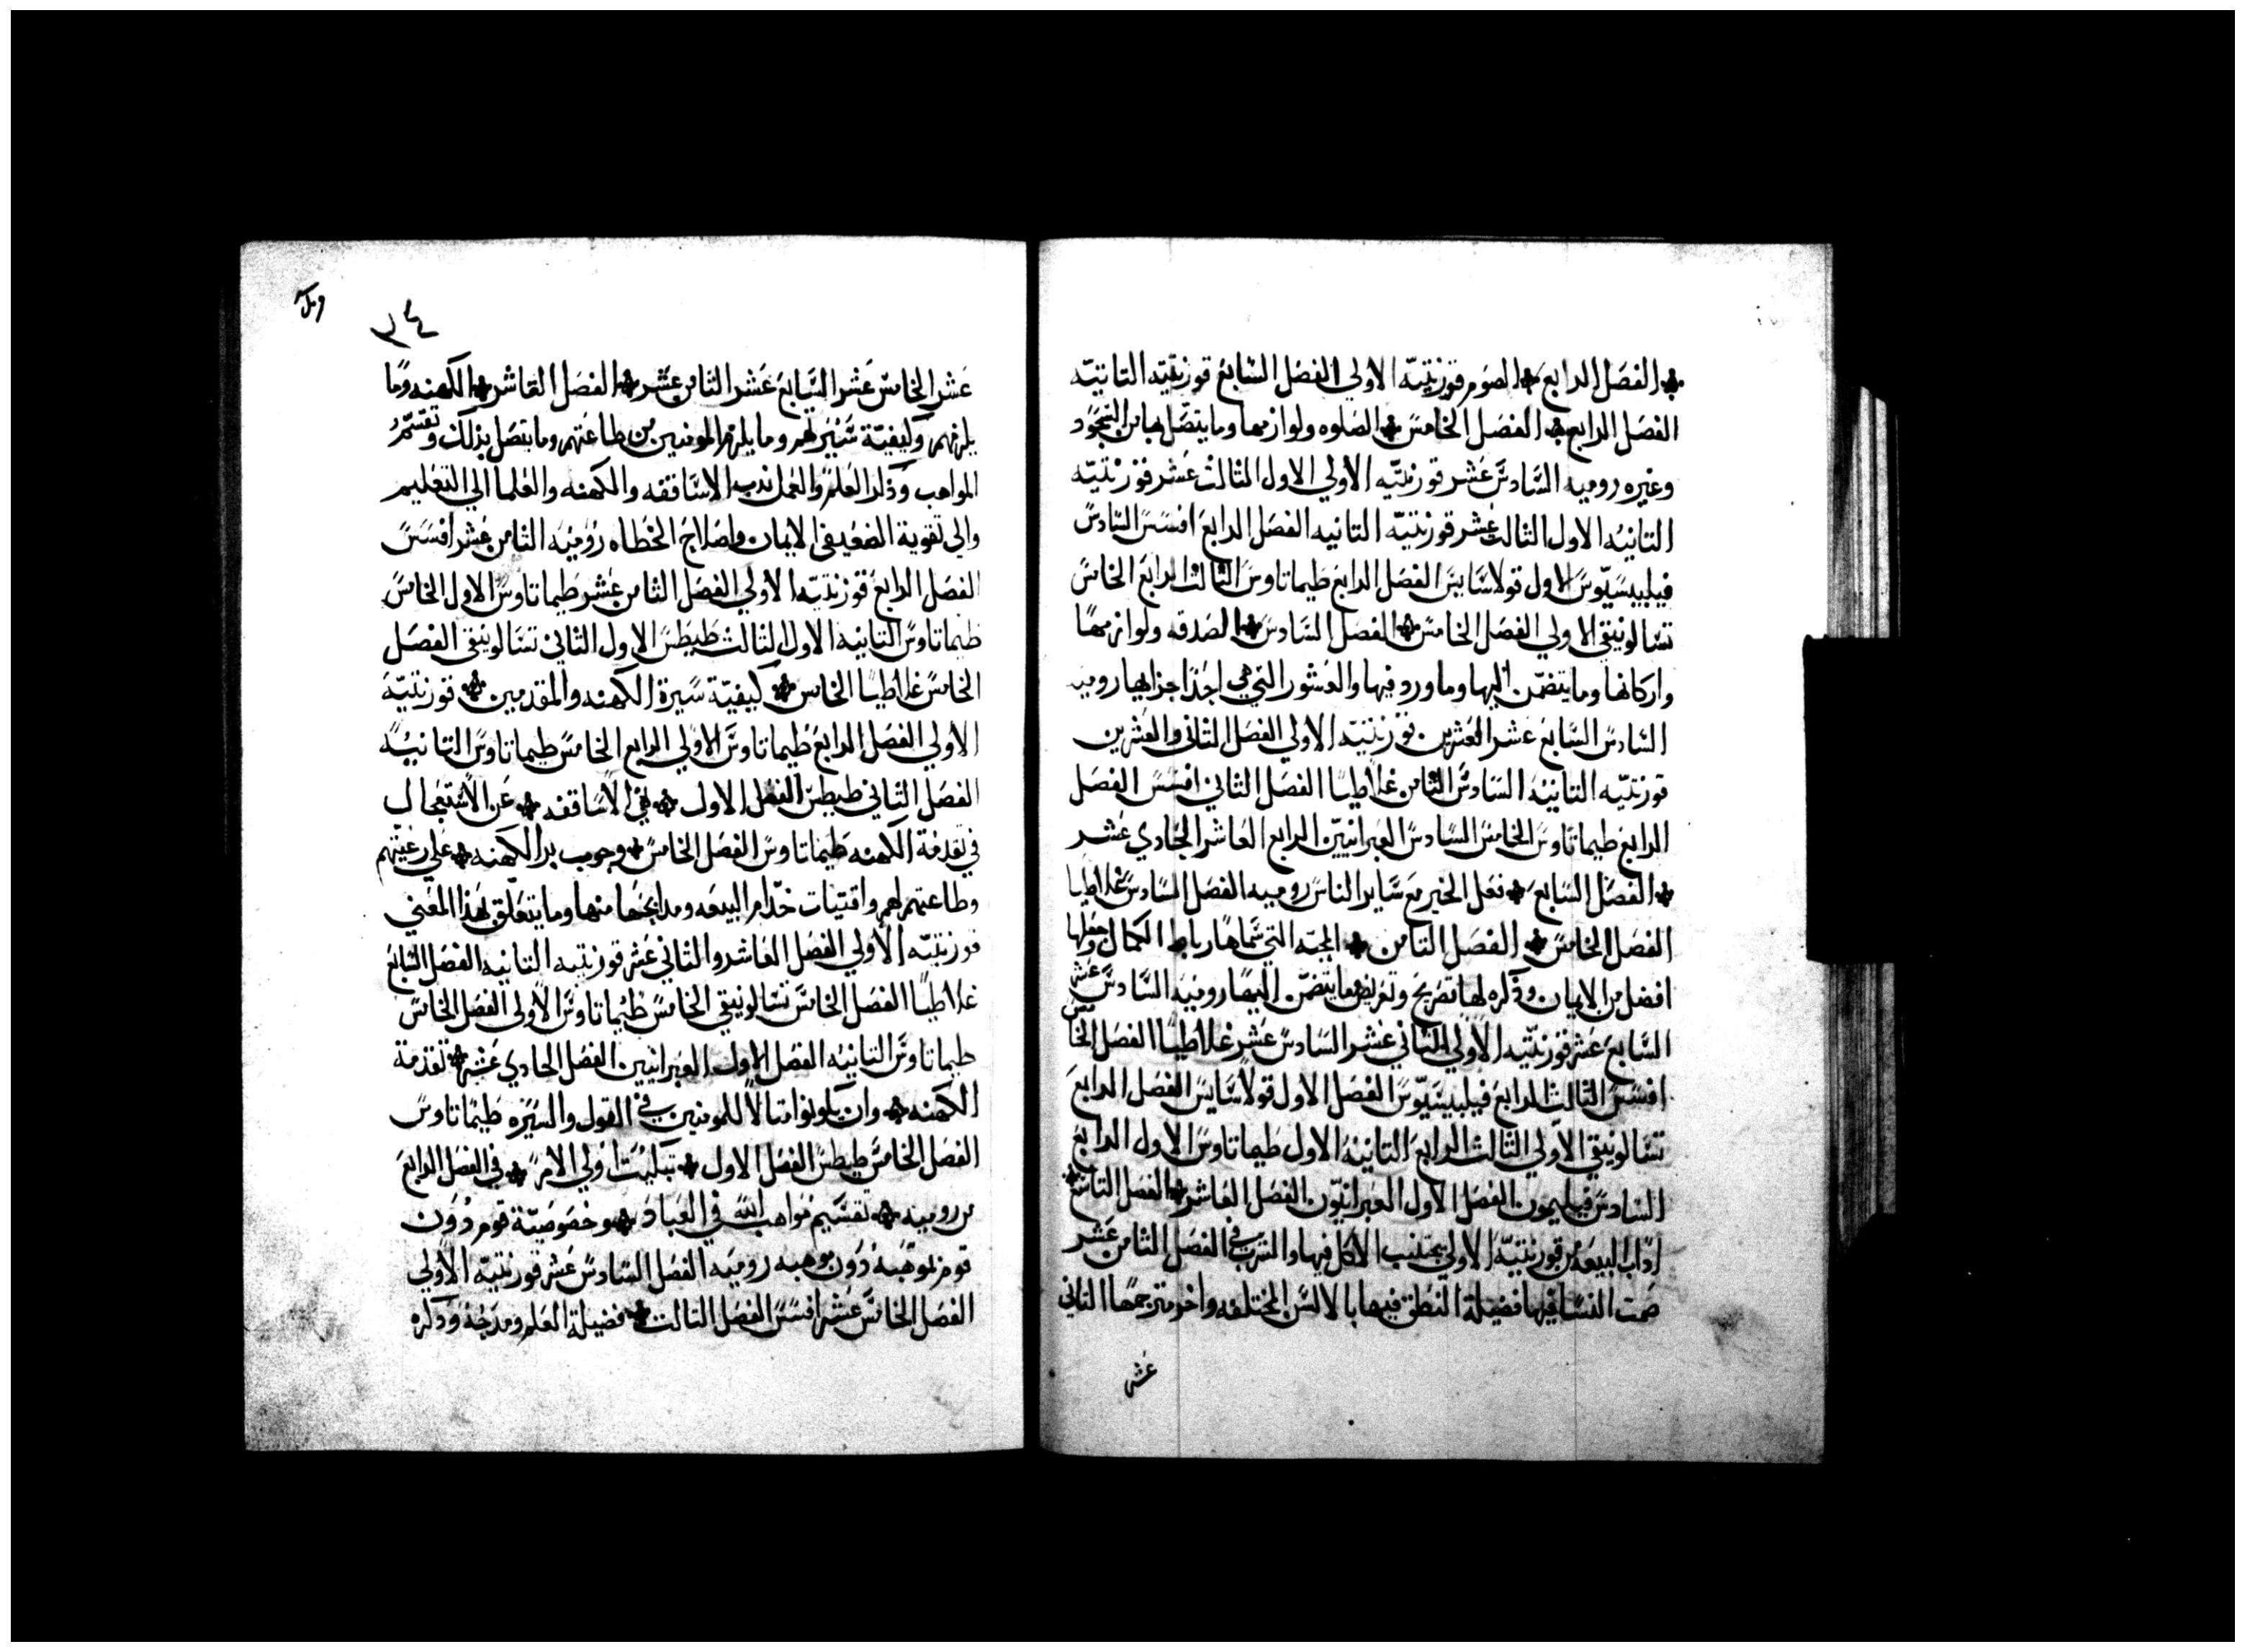 الفصل الرابع الصوم قورنتيّه الاولي الفصل السابع قورنتيّه التانيّه
الفصل الرابع الفصل الخامس الصلوه ولوازمها وما يتصل بها من السجود
وغيره روميه السادس عشر قورنتيّه الاولي الاول الثالث عشر قورنتيّه
التانيه الاول الثالث عشر قورنتيّه التانيه الفصل الرابع افسس السادس
فيلبيسيّوس الاول قولاسايس الفصل الرابع طيماتاوس الثالث الرابع الخامس
تسالونيقي الاولي الفصل الخامس الفصل السادس الصدقه ولوازمها
واركانها وما يتضمّن اليها وما ورد فيها والعشور التي هي احد اجزايها روميه
السادس السابع عشر العشرين قورنتيّه الاولي الفصل الثاني والعشرين
قورنتيّه التانيه السادس الثامن غلاطيا الفصل الثاني افسس الفصل
الرابع طيماتاوس الخامس السادس العبرانيّن الرابع العاشر الحادي عشر
الفصل السابع نعل الخير مع ساير الناس روميه الفصل السادس غلاطيا
الفصل الخامس الفصل التامن المحبّه التي سماها رباط الكمال وجعلها
افضل من الايمان وذكره لها تصريح وتعريض وما يتضمّن اليها روميه السادس عشر
السابع عشر قورنتيّه الاولي الثاني عشر السادس عشر غلاطيا الفصل الخامس
افسس الثالث الرابع فيلبيسيّوس الفصل الاول قولاسايس الفصل الرابع
تسالونيقي الاولي الثالث الرابع التانيه الاول طيماتاوس الاول الرابع
السادس فيليمون الفصل الاول العبرانيّون الفصل العاشر الفصل التاسع
اداب البيعه من قورنتيّه الاولي يجتنب الاكل فيها والشرب في الفصل الثامن عشر
صمت النسا فيها فضيلة النطق فيها بالالسن المختلفه واخر مترجمها الثاني
عشر
٣٤
عشر الخامس عشر السابع عشر الثامن عشر الفصل العاشر الكهنه وما
يلزمهم وكيفيّة سيرهم وما يلزم المومنين من طاعتهم وما يتصل بذلك وتقسّم
المواهب وذكر العلم والعمل ندب الاساقفه والكهنه والعلما الي التعليم
والي تقوية الضعيف في الايمان واصلاح الخطاه روميه الثامن عشر افسس
الفصل الرابع قورنتيّه الاولي الفصل الثامن عشر طيماتاوس الاول الخامس
طيماتاوس التانيه الاول الثالث طيطس الاول الثاني تسالونيقي الفصل
الخامس غلاطيا الخامس كيفيّة سيرة الكهنه والمقدمين قورنتيّه
الاولي الفصل الرابع طيماتاوس الاولي الرابع الخامس طيماتاوس التانيه
الفصل الثاني طيطس الفصل الاول نهي الاساقفه عن الاستعجال
في تقدمة الكهنه طيماتاوس الفصل الخامس وجوب بر الكهنه علي رعيّتهم
وطاعتهم لهم واقتيات خدّام البيعه ومدابحها منها وما يتعلّق بهذا المعني
قورنتيّه الاولي الفصل العاشر والثاني عشر قورنتيه التانيه الفصل السابع
غلاطيا الفصل الخامس تسالونيقي الخامس طيماتاوس الاولي الفصل الخامس
طيماتاوس التانيه الفصل الاول العبرانيين الفصل الحادي عشر تقدمة
الكهنه وان يكونوا متالا للمومنين في القول والسيره طيماتاوس
الفصل الخامس طيطس الفصل الاول تبكيت اولي الامر في الفصل الرابع
من روميه تقسّيم مواهب الله في العباد وخصوصيّة قوم دون
قوم بموهبه دون موهبه روميه الفصل السادس عشر قورنتيّه الاولي
الفصل الخامس عشر افسس الفصل الثالث فضيلة العلم ومدحه وذكره